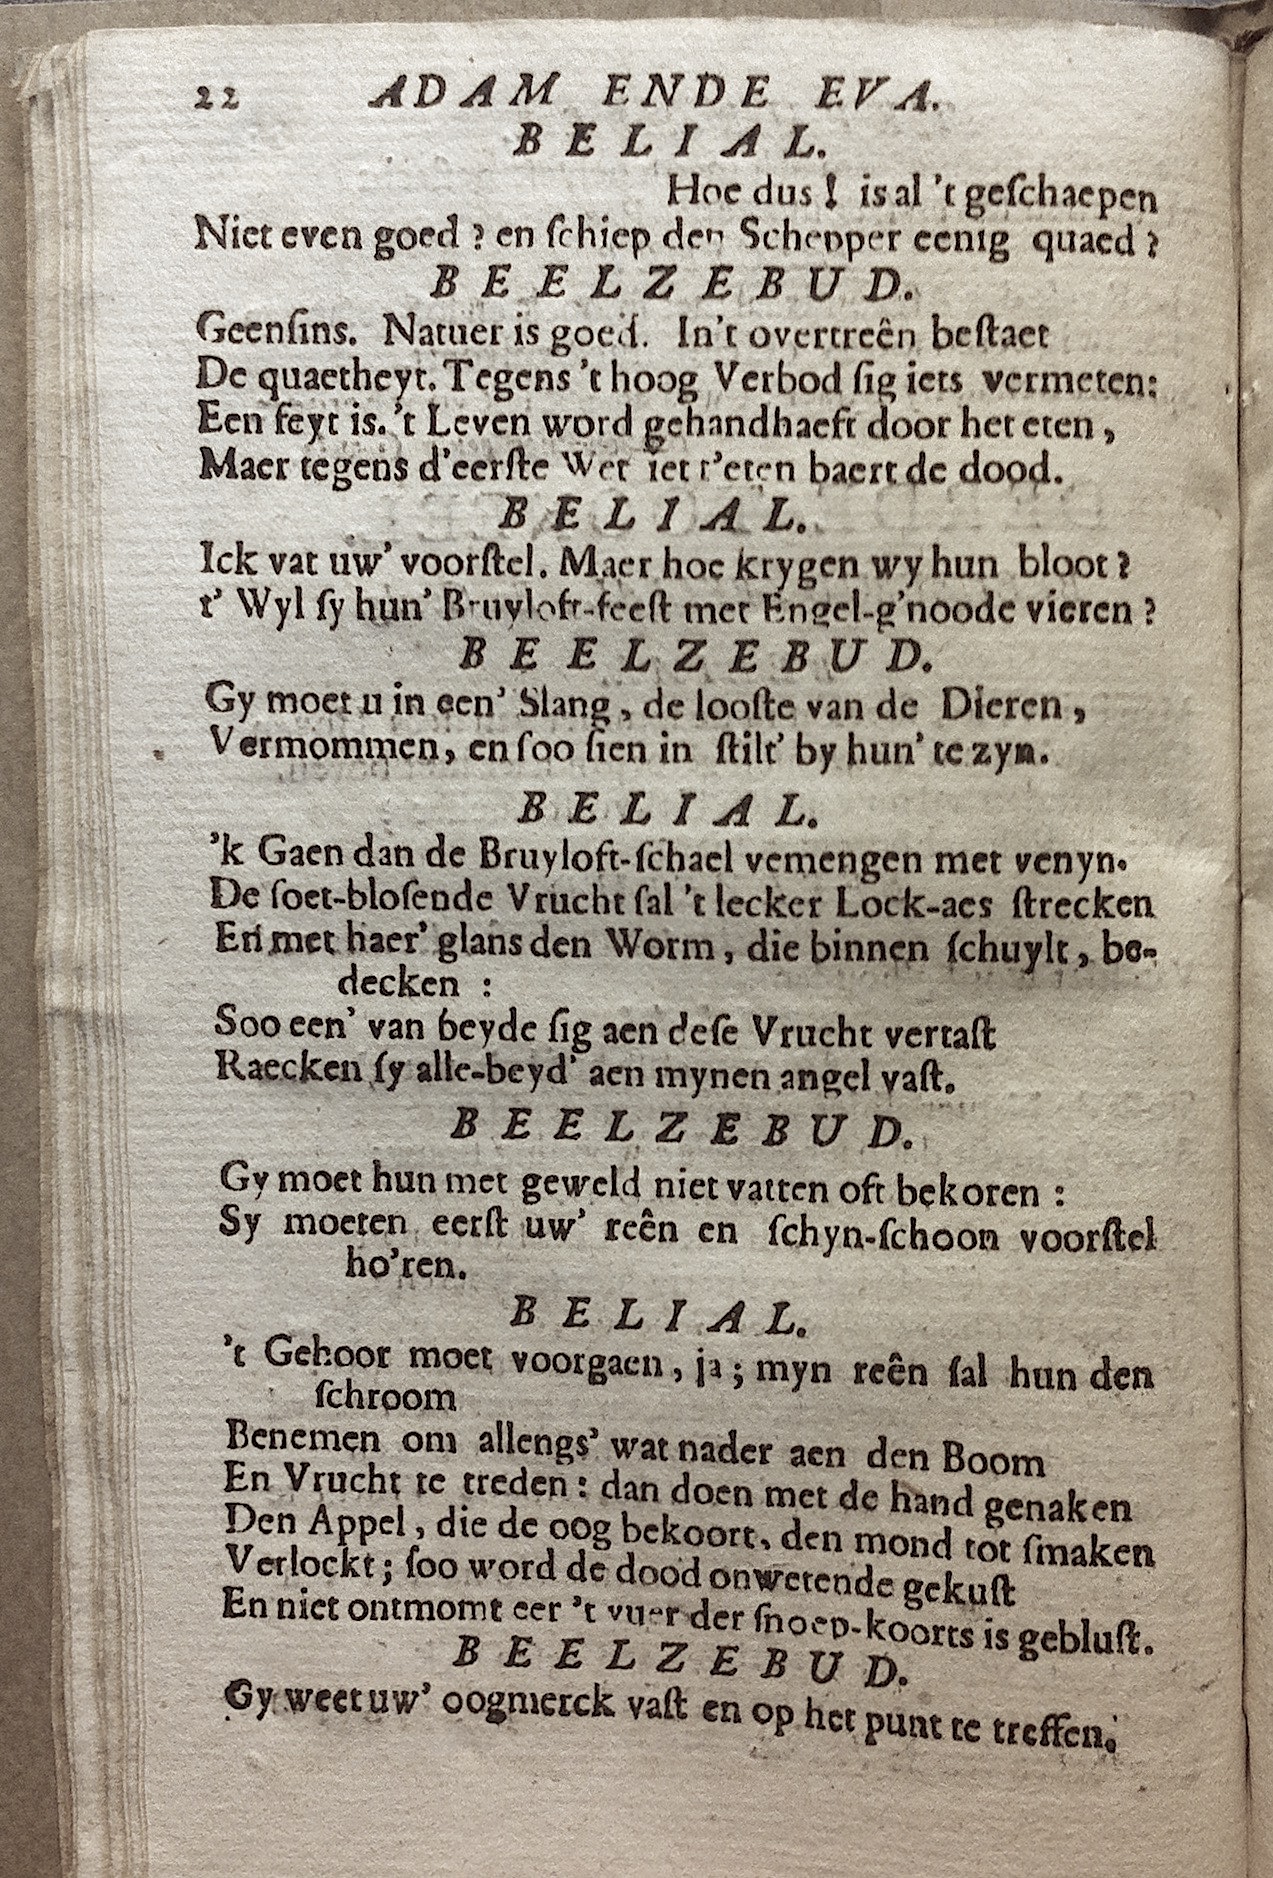 22 ADAM ENDE EVA.
BELIAL.
Hoe dus! is al 't geſchaepen
Niet even goed? en ſchiep den Schepper eenig quaed?
BEELZEBUD.
Geenſins. Natuer is goed. In't overtreên beſtaet
De quaetheyt. Tegens 't hoog Verbod ſig iets vermeten:
Een feyt is. 't Leven word gehandhaeft door het eten,
Maer tegens d'eerſte Wet iet t'eten baert de dood.
BELIAL.
Ick vat uw' voorſtel. Maer hoe krygen wy hun bloot?
t' Wyl ſy hun' Bruyloft-feeſt met Engel-g'noode vieren?
BEELZEBUD.
Gy moet u in een' Slang, de looſte van de Dieren,
Vermommen, en ſoo ſien in ſtilt' by hun' te zyn.
BELIAL.
'k Gaen dan de Bruyloft-ſchael vemengen met venyn.
De ſoet-bloſende Vrucht ſal 't lecker Lock-aes ſtrecken
En met haer' glans den Worm, die binnen ſchuylt, be-
decken :
Soo een' van beyde ſig aen deſe Vrucht vertaſt
Raecken ſy alle-beyd' aen mynen angel vaſt.
BEELZEBUD.
Gy moet hun met geweld niet vatten oft bekoren :
Sy moeten eerſt uw' reên en ſchyn-ſchoon voorſtel
ho'ren.
BELIAL.
't Gehoor moet voorgaen, ja; myn reên ſal hun den
ſchroom
Benemen om allengs' wat nader aen den Boom
En Vrucht te treden: dan doen met de hand genaken
Den Appel, die de oog bekoort, den mond tot ſmaken
Verlockt; ſoo word de dood onwetende gekuſt
En niet ontmomt eer 't vuer der ſnoep-koorts is gebluſt.
BEELZEBUD.
Gy weet uw' oogmerck vaſt en op het punt te treffen.